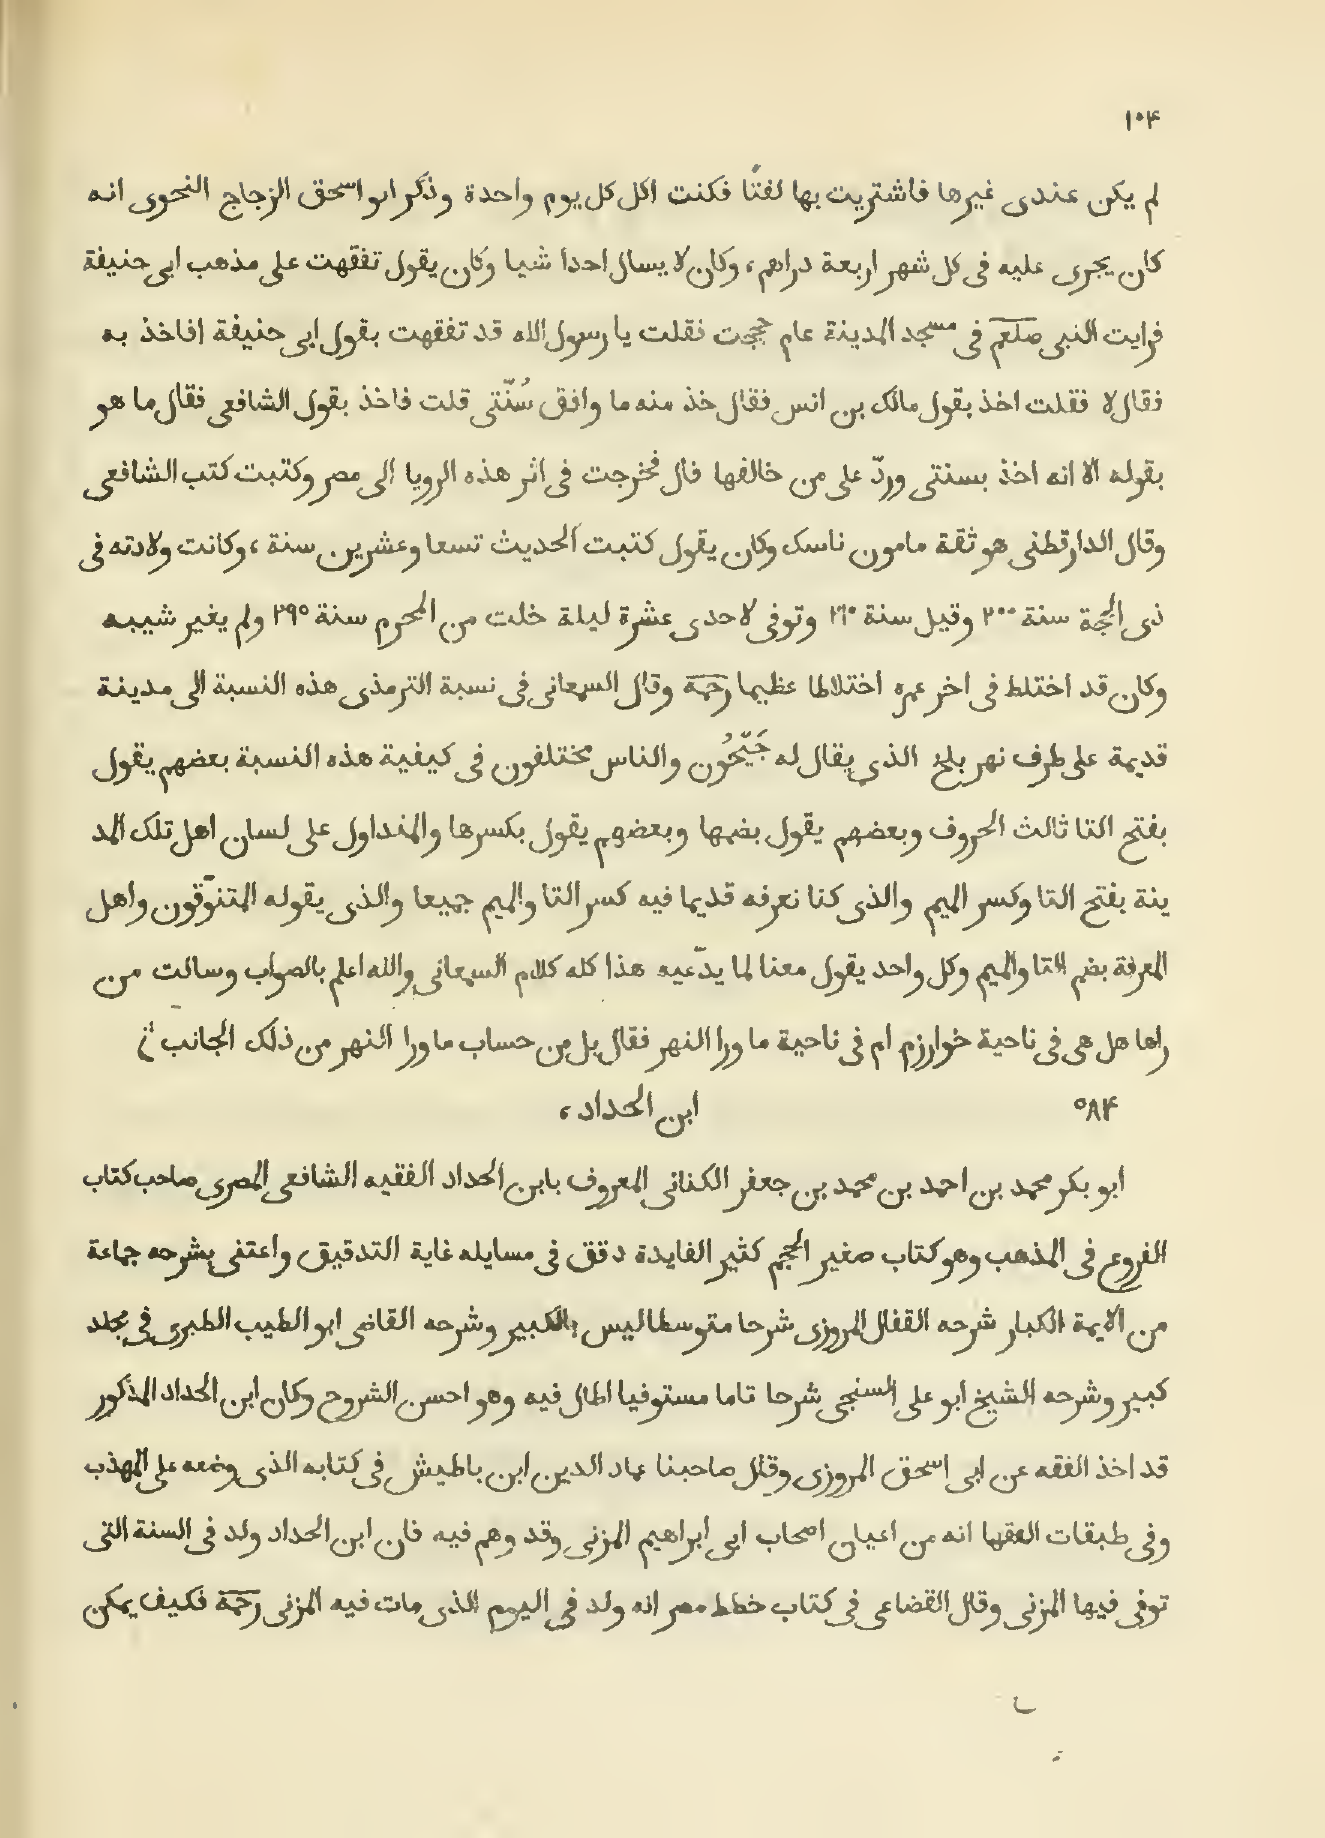 ١٠۴
لم يكن عندى غيرها فاشتريت بها لفتًا فكنت اكل كل يوم واحدة وذكر ابو اسحق الزجاج النحوى انه
كان يجرى عليه فى كل شهر اربعة دراهم، وكان لا يسال احدا شيا وكان يقول تفقهت على مذهب ابى حنيفة
فرايت النبى صلعم فى مسجد المدينة عام حججت فقلت يا رسول الله قد تفقهت بقول ابى حنيفة افاخذ به
فقال لا فقلت اخذ بقول مالك بن انس فقال خذ منه ما وافق سُنّتى قلت فاخذ بقول الشافعى فقال ما هو
بقوله الا انه اخذ بسنتى وردّ على من خالفها قال فخرجت فى اثر هذه الرويا الى مصر وكتبت كتب الشافعى
وقال الدارقطنى هو ثقة مامون ناسك وكان يقول كتبت الحديث تسعا وعشرين سنة، وكانت ولادته فى
ذى الحجة سنة ٢٠٠ وقيل سنة ٢١٠ وتوفى لاحدى عشرة ليلة خلت من المحرم سنة ٢٩٥ ولم يغير شيبه
وكان قد اختلط فى اخر عمره اختلاطا عظيما رحمه وقال السمعانى فى نسبة الترمذى هذه النسبة الى مدينة
قديمة على طرف نهر بلخ الذى يقال له جَيّحُون والناس مختلفون فى كيفية هذه النسبة بعضهم يقول
بفتح التا ثالث الحروف وبعضهم يقول بضمها وبعضهم يقول بكسرها والمتداول على لسان اهل تلك المد
ينة بفتح التا وكسر الميم والذى كنا نعرفه قديما فيه كسر التا والميم جميعا والذى يقوله المتنوّقون واهل
المعرفة بضم التا والميم وكل واحد يقول معنا لما يدّعيه هذا كله كلام السمعانى والله اعلم بالصواب وسالت من
راها هل هى فى ناحية خوارزم ام فى ناحية ما ورا النهر فقال بل من حساب ما ورا النهر من ذلك الجانب
٥٨۴ ابن الحداد،
ابو بكر محمد بن احمد بن محمد بن جعفر الكنانى المعروف بابن الحداد الفقيه الشافعى المصرى صاحب كتاب
الفروع فى المذهب وهو كتاب صغير الحجم كثير الفايدة دقق فى مسايله غاية التدقيق واعتنى بشرحه جماعة
من الايمة الكبار شرحه القفال المروزى شرحا متوسطا ليس بالكبير وشرحه القاضى ابو الطيب الطبرى فى مجلد
كبير وشرحه الشيخ ابو على السنجى شرحا تاما مستوفيا اطال فيه وهو احسن الشروح وكان ابن الحداد المذكور
قد اخذ الفقه عن ابى اسحق المروزى وقال صاحبنا عماد الدين ابن باطيش فى كتابه الذى وضعه على المهذب
وفى طبقات الفقها انه من اعيان اصحاب ابى ابراهيم المزنى وقد وهم فيه فان ابن الحداد ولد فى السنة التى
توفى فيها المزنى وقال القضاعى فى كتاب خطط مصر انه ولد فى اليوم الذى مات فيه المزنى رحمه فكيف يمكن